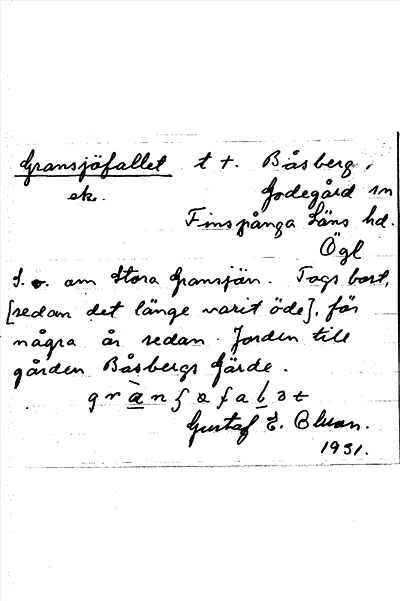 Gransjöfallet t t. Båsberg,
ek. Godegård sn
Finspånga Läns hd.
Ögl
S. o. om Stora Gransjön. Togs bort,
[sedan det länge varit öde], för
några år sedan. Jorden till
gården Båsbergs Gärde.
Gustaf E. Bluan.
1931.